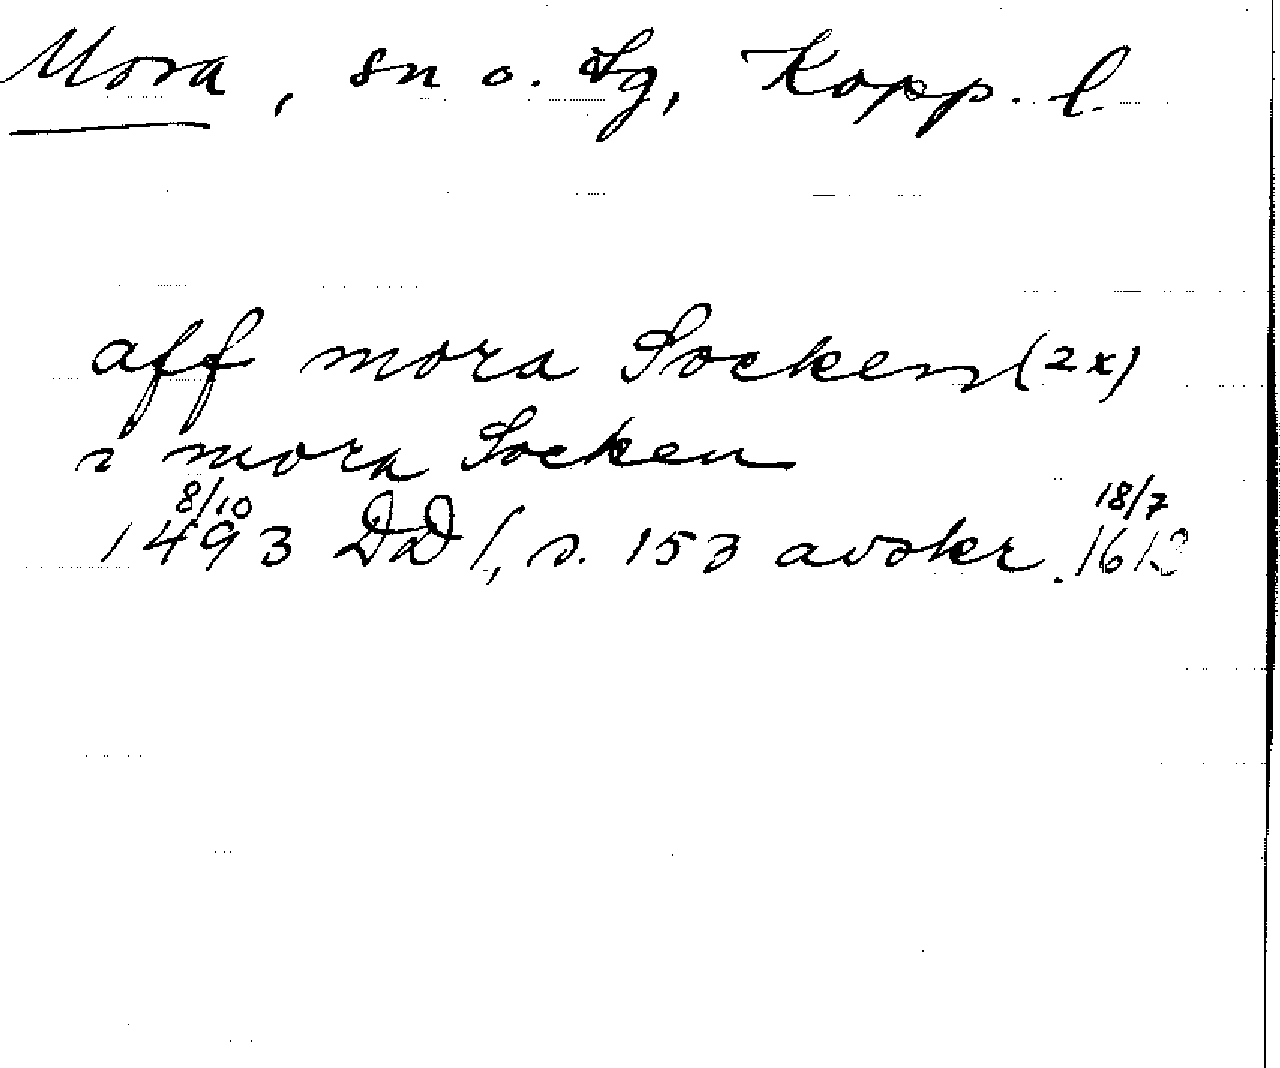 Mora, sn o. tg, Kopp. l.
aff mora Socken (2x)
i mora Socken
8/10 18/7
1493 DD 1, s. 153 avskr. 1612